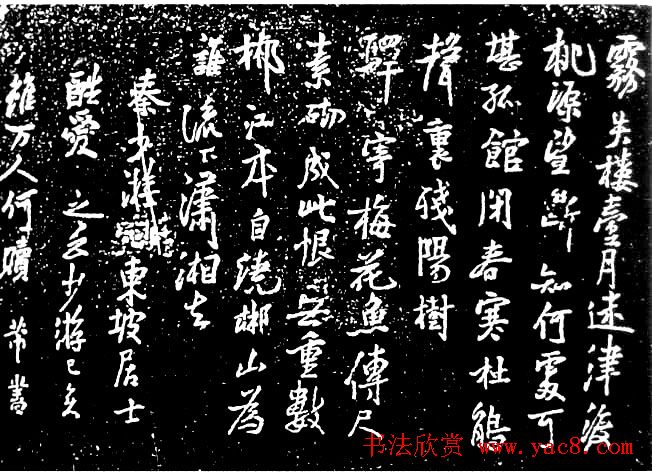 霧失楼臺月迷津渡
桃源望斷知何處可
堪孤館閉春寒杜鵑
聲裏殘陽樹
驛寄梅花魚傳尺
素砌成此恨無重數
郴江本自繞郴山為
誰流下瀟湘去
秦少游東坡居士
酷愛之云少游已矣
雖万人何贖 芾書
书法欣赏 www.yac8.com